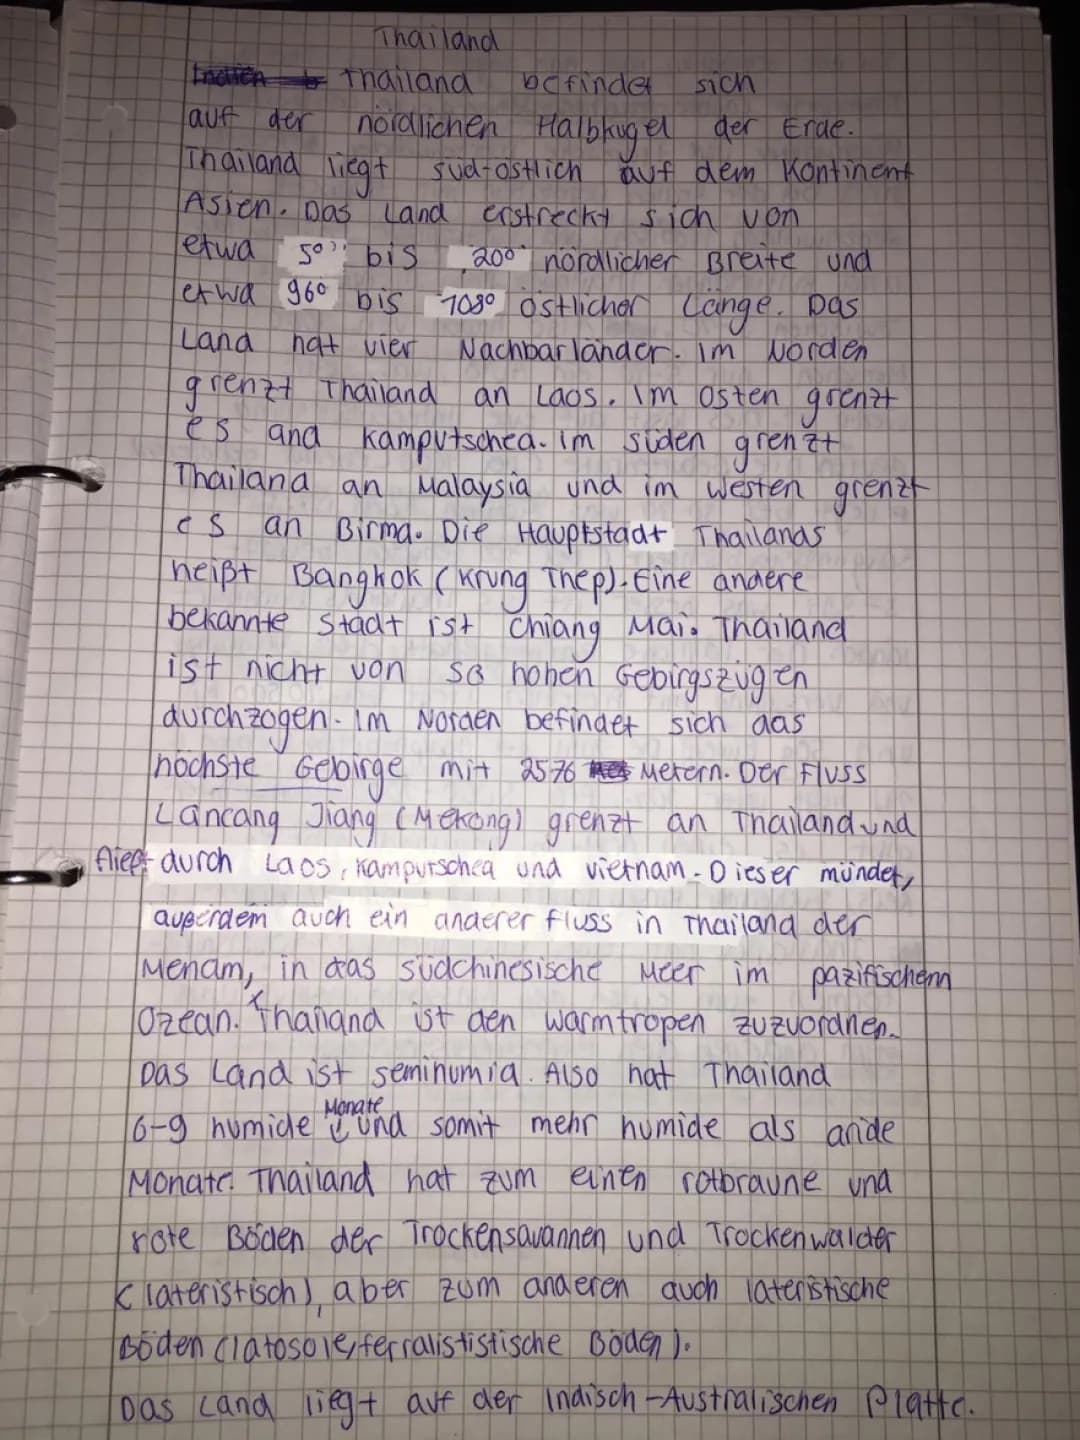 Thailand
Thailand befindet sich
auf der nördlichen Halbkugel der Erde.
Thailand liegt süd-östlich auf dem Kontinent
Asien. Das Land erstreckt sich von
etwa 5° bis 20° nördlicher Breite und
etwa 96° bis 108° östlicher Länge. Das
Land hat vier Nachbarländer. Im Norden
grenzt Thailand an Laos. Im Osten grenzt
es and Kamputschea. Im Süden grenzt
Thailand an Malaysia und im Westen grenzt
es an Birma. Die Hauptstadt Thailands
heißt Bangkok (Krung Thep). Eine andere
bekannte Stadt ist Chiang Mai. Thailand
ist nicht von so hohen Gebirgszügen
durchzogen. Im Norden befindet sich das
höchste Gebirge mit 2576 Metern. Der Fluss
Lancang Jiang (Mekong) grenzt an Thailand und
fließt durch Laos, Kamputschea und Vietnam. Dieser mündet,
außerdem auch ein anderer Fluss in Thailand der
Menam, in das südchinesische Meer im pazifischem
Ozean. Thailand ist den Warmtropen zuzuordnen.
Das Land ist semihumid. Also hat Thailand
6-9 humide Monate und somit mehr humide als aride
Monate. Thailand hat zum einen rotbraune und
rote Böden der Trockensavannen und Trockenwälder
(lateristisch), aber zum anderen auch lateristische
Böden (latosole, ferralististische Böden).
Das Land liegt auf der Indisch-Australischen Platte.